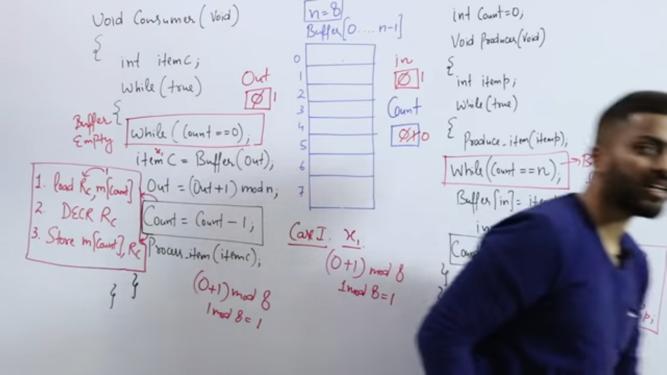 Void Consumer (Void)
{
int itemc;
While(true)
{
Buffer Empty
While (Count ==0);
itemC = Buffer(Out);
Out = (Out+1) mod n;
Count = Count - 1;
Process.item(itemc);
}
}
1. load Rc, m[Count]
2. DECR Rc
3. Store m[Count], Rc
(0+1) mod 8
1 mod 8 = 1
Out
0 1
n=8
Buffer[0....n-1]
0
1
2
3
4
5
6
7
in
0 1
Count
0 1 0
Case I. x1
(0+1) mod 8
1 mod 8 = 1
int Count=0;
Void Producer(Void)
{
int itemp;
While(true)
{
Produce.item(itemp);
While(Count ==n);
Buffer[in] =
in
}